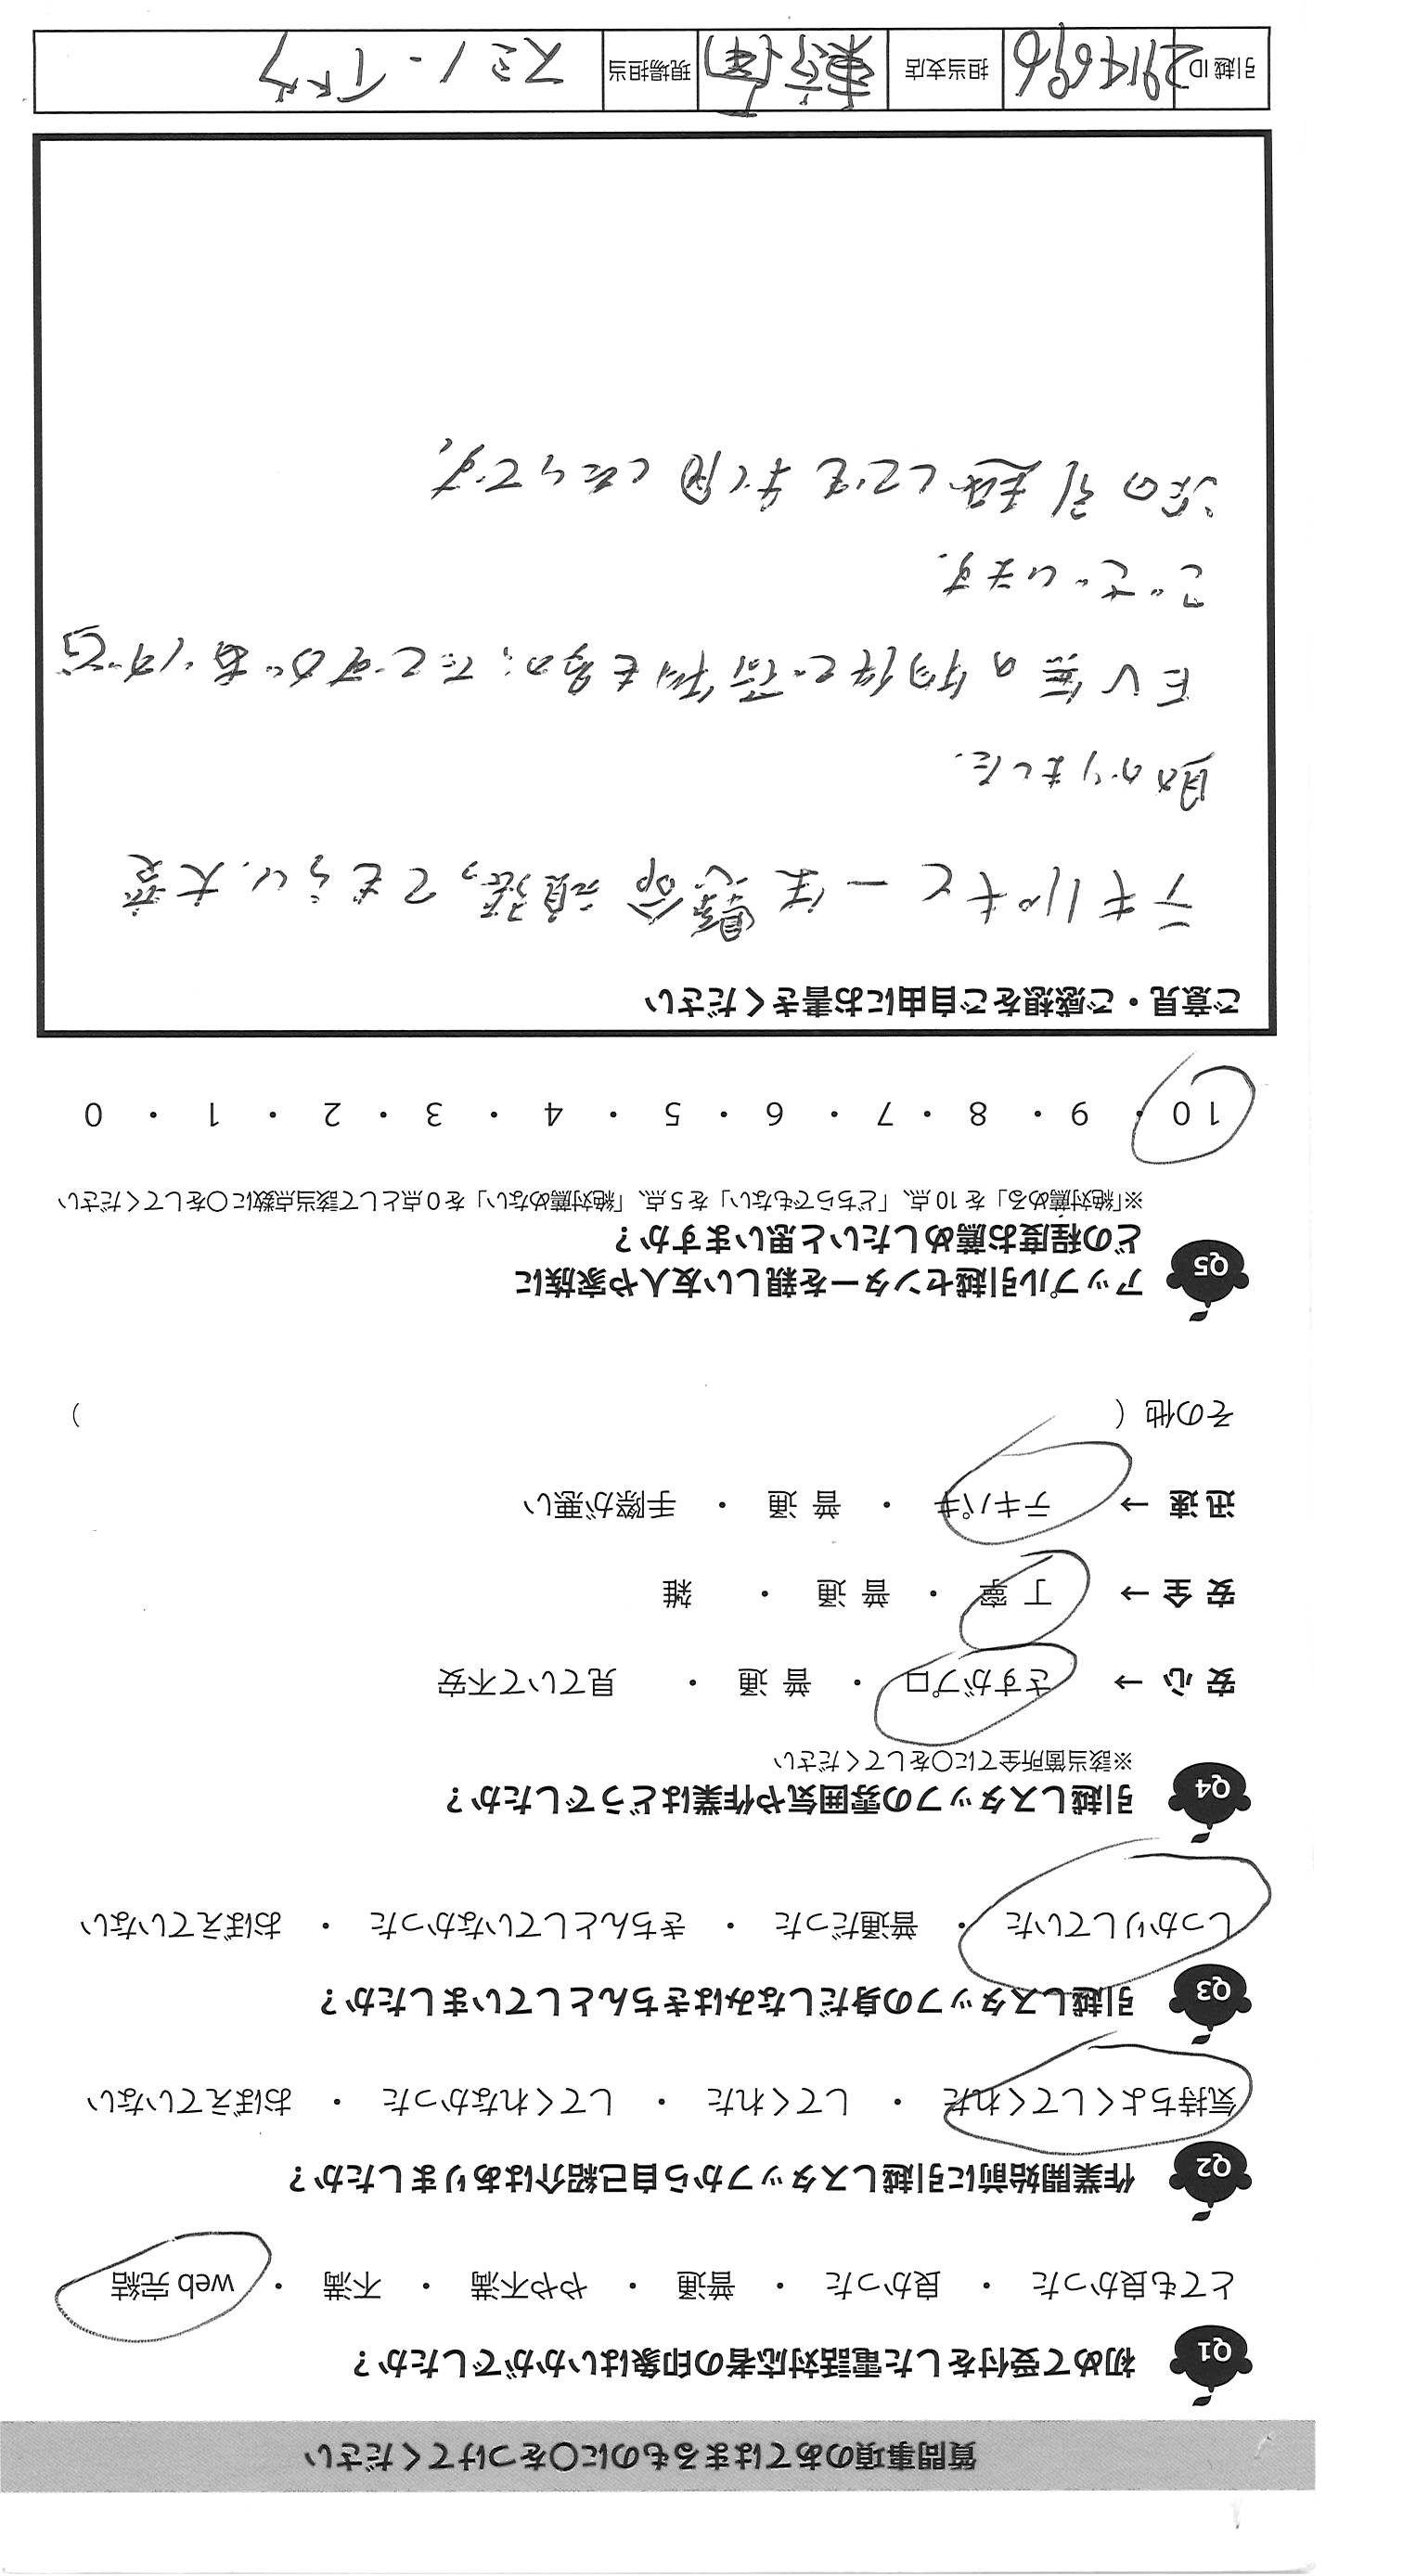 質問事項のあてはまるものに〇をつけてください
Q1 初めて受付をした電話対応者の印象はいかがでしたか？
とても良かった ・ 良かった ・ 普通 ・ やや不満 ・ 不満 ・ web 完結
Q2 作業開始前に引越しスタッフから自己紹介はありましたか？
気持ちよくしてくれた ・ してくれた ・ してくれなかった ・ おぼえていない
Q3 引越しスタッフの身だしなみはきちんとしていましたか？
しっかりしていた ・ 普通だった ・ きちんとしていなかった ・ おぼえていない
Q4 引越しスタッフの雰囲気や作業はどうでしたか？
※該当箇所全てに〇をしてください
安 心 → さすがプロ ・ 普 通 ・ 見ていて不安
安 全 → 丁 寧 ・ 普 通 ・ 雑
迅 速 → テキパキ ・ 普 通 ・ 手際が悪い
その他（ ）
Q5 アップル引越センターを親しい友人や家族に
どの程度お薦めしたいと思いますか？
※「絶対薦める」を 10 点、「どちらでもない」を 5 点、「絶対薦めない」を 0 点として該当点数に〇をしてください
10 ・ 9 ・ 8 ・ 7 ・ 6 ・ 5 ・ 4 ・ 3 ・ 2 ・ 1 ・ 0
ご意見・ご感想をご自由にお書きください
テキパキと一生懸命頑張ってもらい、大変
助かりました。
EV無の物件で荷物も多かったですがありがとう
ございます。
次の引越しでも利用したいです。
引越 ID 2914696 担当支店 東京 現場担当 スミノ・イトウ